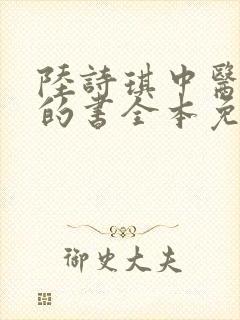 陸詩琪中醫
的書全本免
御史大夫